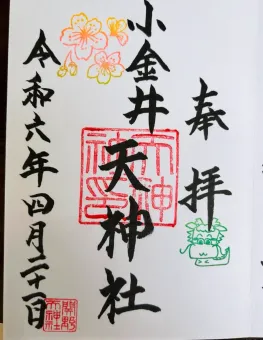 奉拝
小金井
天神社
天神
社印
令和六年四月二十一日